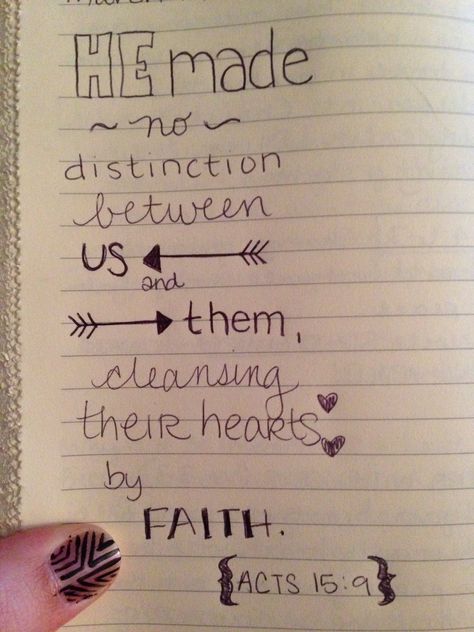 HE made
~ no ~
distinction
between
us
and
them,
cleansing
their hearts
by
FAITH.
{ACTS 15:9}